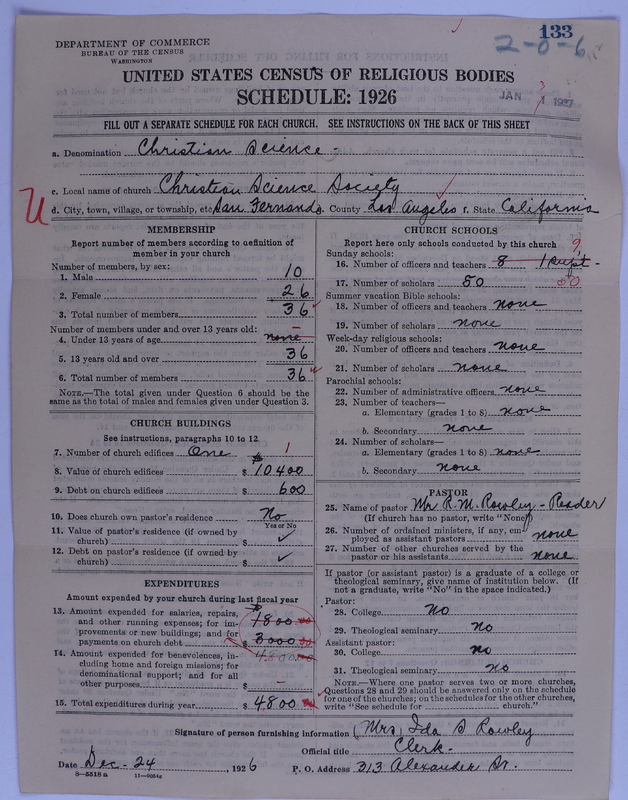 133
2-0-6
DEPARTMENT OF COMMERCE
BUREAU OF THE CENSUS
WASHINGTON
UNITED STATES CENSUS OF RELIGIOUS BODIES
SCHEDULE: 1926
JAN 3 1927
FILL OUT A SEPARATE SCHEDULE FOR EACH CHURCH. SEE INSTRUCTIONS ON THE BACK OF THIS SHEET
a. Denomination Christian Science -
c. Local name of church Christian Science Society
U
d. City, town, village, or township, etc. San Fernando. County Los Angeles f. State California
MEMBERSHIP
Report number of members according to definition of
member in your church
Number of members, by sex:
1. Male 10
2. Female 26
3. Total number of members 36
Number of members under and over 13 years old:
4. Under 13 years of age none -
5. 13 years old and over 36
6. Total number of members 36
NOTE.—The total given under Question 6 should be
the same as the total of males and females given under Question 3.
CHURCH BUILDINGS
See instructions, paragraphs 10 to 12
7. Number of church edifices One 1
8. Value of church edifices $ 10400
9. Debt on church edifices $ 600
10. Does church own pastor's residence No
Yes or No
11. Value of pastor's residence (if owned by
church) $ ✓
12. Debt on pastor's residence (if owned by
church) $ ✓
EXPENDITURES
Amount expended by your church during last fiscal year
13. Amount expended for salaries, repairs,
and other running expenses; for im-
provements or new buildings; and for
payments on church debt $ 1800 00
3000 00
4800 00
14. Amount expended for benevolences, in-
cluding home and foreign missions; for
denominational support; and for all
other purposes $ -
15. Total expenditures during year $ 4800
CHURCH SCHOOLS
Report here only schools conducted by this church
Sunday schools:
16. Number of officers and teachers 8 1 Supt. 9
17. Number of scholars 50 50
Summer vacation Bible schools:
18. Number of officers and teachers none
19. Number of scholars none
Week-day religious schools:
20. Number of officers and teachers none
21. Number of scholars none
Parochial schools:
22. Number of administrative officers none
23. Number of teachers—
a. Elementary (grades 1 to 8) none
b. Secondary none
24. Number of scholars—
a. Elementary (grades 1 to 8) none
b. Secondary none
PASTOR
25. Name of pastor Mr R. M. Rowley - Reader
(If church has no pastor, write "None")
26. Number of ordained ministers, if any, em-
ployed as assistant pastors none
27. Number of other churches served by the
pastor or his assistants none
If pastor (or assistant pastor) is a graduate of a college or
theological seminary, give name of institution below. (If
not a graduate, write "No" in the space indicated.)
Pastor:
28. College No
29. Theological seminary No
Assistant pastor:
30. College No
31. Theological seminary No
NOTE.—Where one pastor serves two or more churches,
Questions 28 and 29 should be answered only on the schedule
for one of the churches; on the schedules for the other churches,
write "See schedule for church."
Signature of person furnishing information (Mrs) Ida S Rowley
Official title Clerk -
Date Dec - 24, 1926 P. O. Address 313 Alexander St.
8—5518 a 11—9054